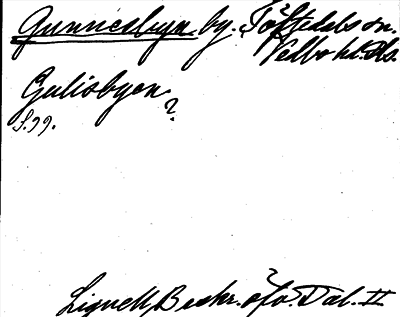 Gunnesbyn. by. Töftedals sn.
Vedbo hd. Ds.
Gulisbyen?
S. 99.
Lignell, Beskr. öfv. Dal. II